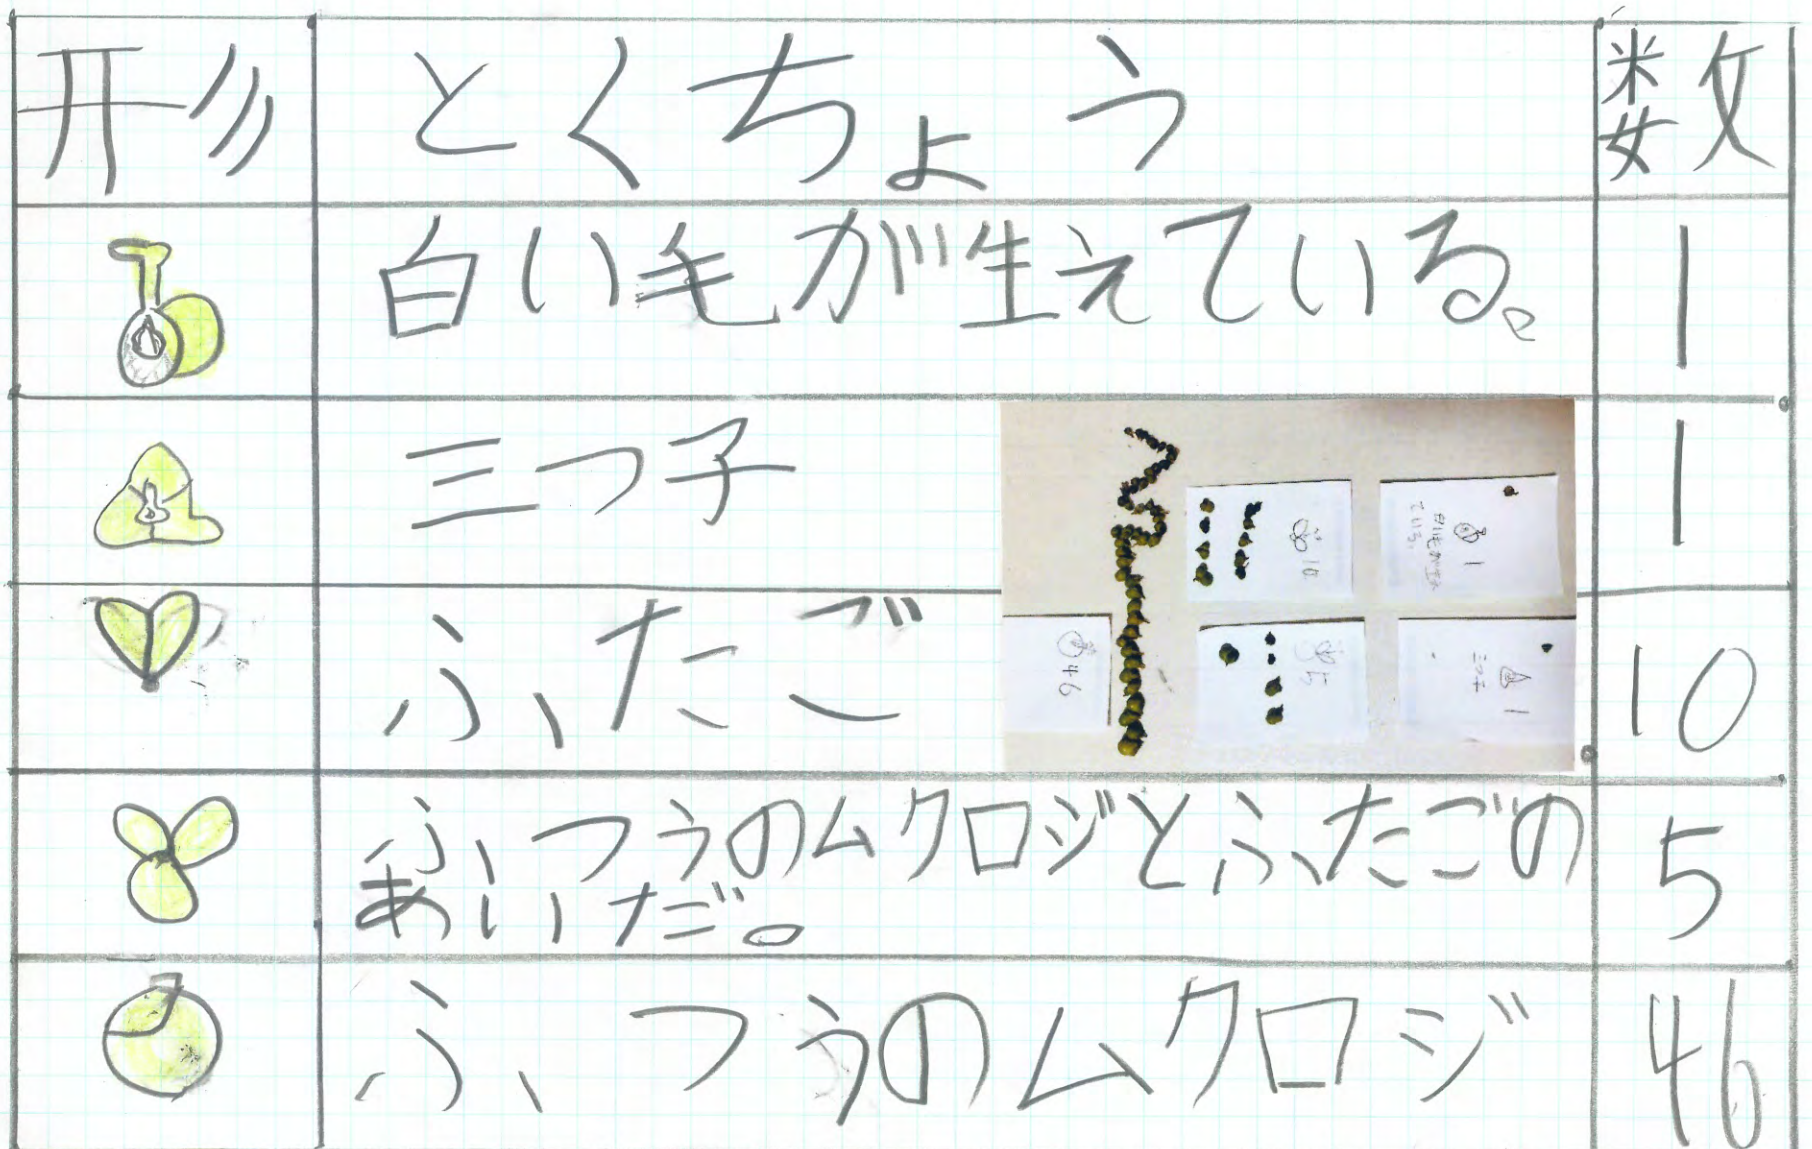 形 とくちょう 数
白い毛が生えている。 1
三つ子 1
ふたご 10
ふつうのムクロジとふたごの
あいだ。 5
ふつうのムクロジ 46
10
1
白い毛が生え
ている。
46
5
1
三つ子